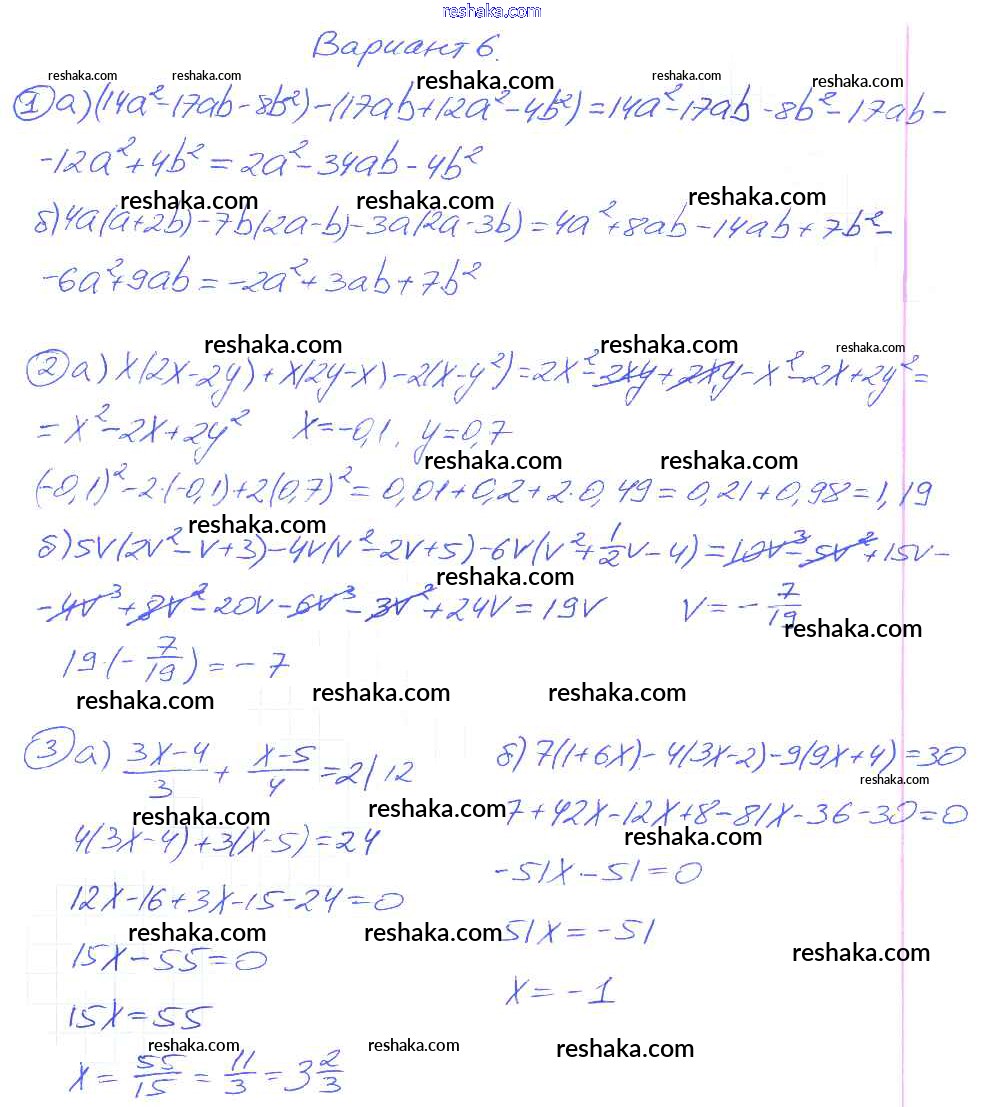 reshaka.com
Вариант 6.
reshaka.com reshaka.com reshaka.com reshaka.com reshaka.com
① а) (14a² - 17ab - 8b²) - (17ab + 12a² - 4b²) = 14a² - 17ab - 8b² - 17ab -
- 12a² + 4b² = 2a² - 34ab - 4b²
reshaka.com reshaka.com reshaka.com
б) 4a(a + 2b) - 7b(2a - b) - 3a(2a - 3b) = 4a² + 8ab - 14ab + 7b² -
- 6a² + 9ab = -2a² + 3ab + 7b²
reshaka.com reshaka.com reshaka.com
② а) x(2x - 2y) + x(2y - x) - 2(x - y²) = 2x² - 2xy + 2xy - x² - 2x + 2y² =
= x² - 2x + 2y² x = -0,1, y = 0,7
reshaka.com reshaka.com
(-0,1)² - 2·(-0,1) + 2(0,7)² = 0,01 + 0,2 + 2·0,49 = 0,21 + 0,98 = 1,19
reshaka.com
б) 5v(2v² - v + 3) - 4v(v² - 2v + 5) - 6v(v² + 1/2 v - 4) = 10v³ - 5v² + 15v -
reshaka.com
- 4v³ + 8v² - 20v - 6v³ - 3v² + 24v = 19v v = - 7/19
reshaka.com
19·(- 7/19) = - 7
reshaka.com reshaka.com reshaka.com
③ а) (3x-4)/3 + (x-5)/4 = 2 | 12
4(3x - 4) + 3(x - 5) = 24
12x - 16 + 3x - 15 - 24 = 0
15x - 55 = 0
15x = 55
x = 55/15 = 11/3 = 3 2/3
б) 7(1 + 6x) - 4(3x - 2) - 9(9x + 4) = 30
7 + 42x - 12x + 8 - 81x - 36 - 30 = 0
-51x - 51 = 0
51x = -51
x = -1
reshaka.com
reshaka.com reshaka.com
reshaka.com
reshaka.com reshaka.com reshaka.com
reshaka.com reshaka.com reshaka.com